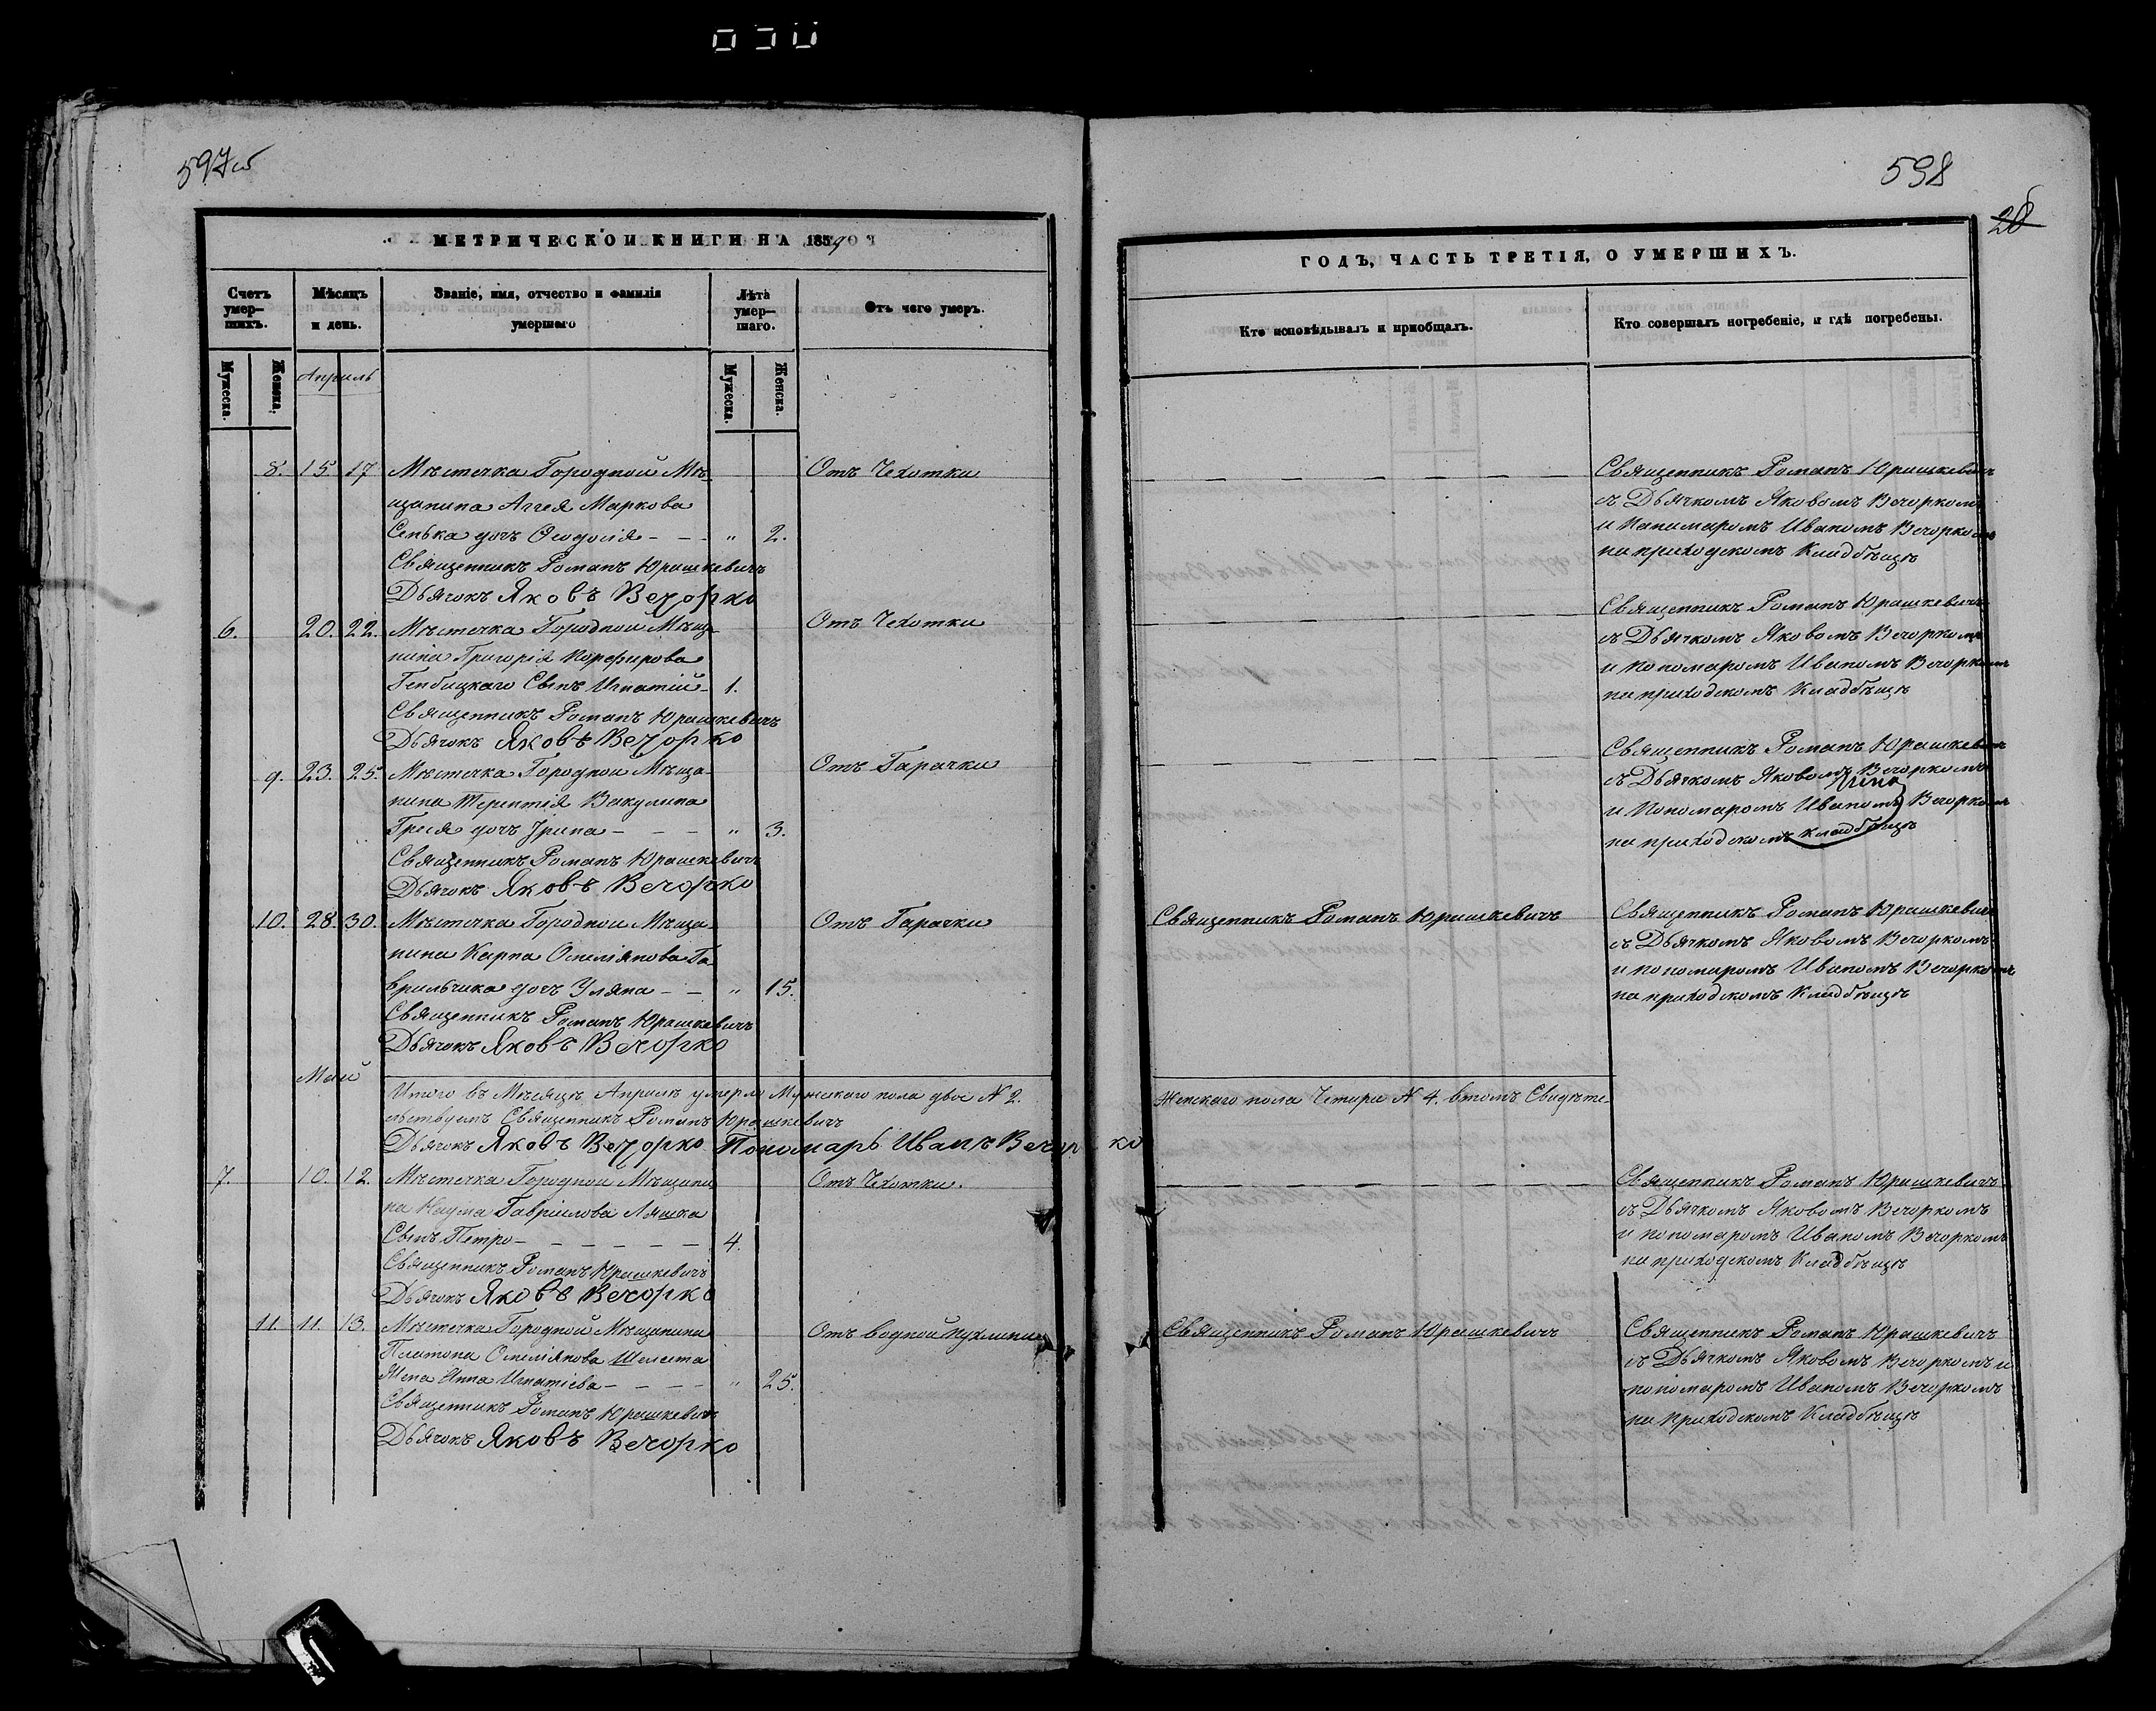 597об
МЕТРИЧЕСКОЙ КНИГИ НА 1859
Счетъ умер-шихъ.
Мѣсяцъ и день.
Званіе, имя, отчество и фамилія умершаго
Лѣта умер-шаго.
Отъ чего умеръ.
Мужеска.
Женска.
Апрѣль
Мужеска.
Женска.
8. 15 17 Мѣстечка Городной Мѣ- Отъ Чехотки
щанина Аггея Маркова
Сенька дочь Ѳеодосія - - - „ 2.
Священникъ Романъ Юрашкевичъ
Дьячокъ Яковъ Вечорко
6. 20. 22. Мѣстечка Городной Мѣща- Отъ Чехотки
нина Григорія Порфирова
Сынъ Игнатій - 1.
Священникъ Романъ Юрашкевичъ
Дьячокъ Яковъ Вечорко
9. 23. 25. Мѣстечка Городной Мѣща- Отъ Гарачки
нина Терентія Вакулина
дочь Ірина - - - „ 3.
Священникъ Романъ Юрашкевичъ
Дьячокъ Яковъ Вечорко
10. 28. 30. Мѣстечка Городной Мѣща- Отъ Гарачки
нина Карпа Омеліянова Га-
врильчика дочь Уляна - - „ 15.
Священникъ Романъ Юрашкевичъ
Дьячокъ Яковъ Вечорко
Май
Итого въ Мѣсяцѣ Априлѣ умерло Мужескаго пола двое N 2.
льствуемъ Священникъ Романъ Юрашкевичъ
Дьячокъ Яковъ Вечорко Пономарь Иванъ Вечорко
7. 10. 12. Мѣстечка Городной Мѣщани Отъ Чехотки.
на Наума Гавріилова Ляшка
Сынъ Петро - - - - - - 4.
Священникъ Романъ Юрашкевичъ
Дьячокъ Яковъ Вечорко
11. 11. 13. Мѣстечка Городной Мѣщанина Отъ водной пухлины
Платона Омеліянова Шелеста
Жена Анна Игнатіева - - - - „ 25.
Священникъ Романъ Юрашкевичъ
Дьячокъ Яковъ Вечорко
598
28
ГОДЪ, ЧАСТЬ ТРЕТІЯ, О УМЕРШИХЪ.
Кто исповѣдывалъ и пріобщалъ.
Кто совершалъ погребеніе, и гдѣ погребены.
Священникъ Романъ Юрашкевичъ
съ Дьячкомъ Яковомъ Вечоркомъ
и Пономаромъ Иваномъ Вечоркомъ
на приходскомъ Кладбѣщѣ
Священникъ Романъ Юрашкевичъ
съ Дьячкомъ Яковомъ Вечоркомъ
и Пономаромъ Иваномъ Вечоркомъ
на приходскомъ Кладбѣщѣ
Священникъ Романъ Юрашкевичъ
съ Дьячкомъ Яковомъ Вечоркомъ
и Пономаромъ Иваномъ Вечоркомъ
на приходскомъ Кладбѣщѣ
Священникъ Романъ Юрашкевичъ Священникъ Романъ Юрашкевичъ
съ Дьячкомъ Яковомъ Вечоркомъ
и пономаромъ Иваномъ Вечоркомъ
на приходскомъ Кладбѣщѣ
Женскаго пола Четыри N 4. втомъ Свидѣте-
Священникъ Романъ Юрашкевичъ
съ Дьячкомъ Яковомъ Вечоркомъ
и пономаромъ Иваномъ Вечоркомъ
на приходскомъ Кладбѣщѣ
Священникъ Романъ Юрашкевичъ Священникъ Романъ Юрашкевичъ
съ Дьячкомъ Яковомъ Вечоркомъ и
пономаромъ Иваномъ Вечоркомъ
на приходскомъ Кладбѣщѣ